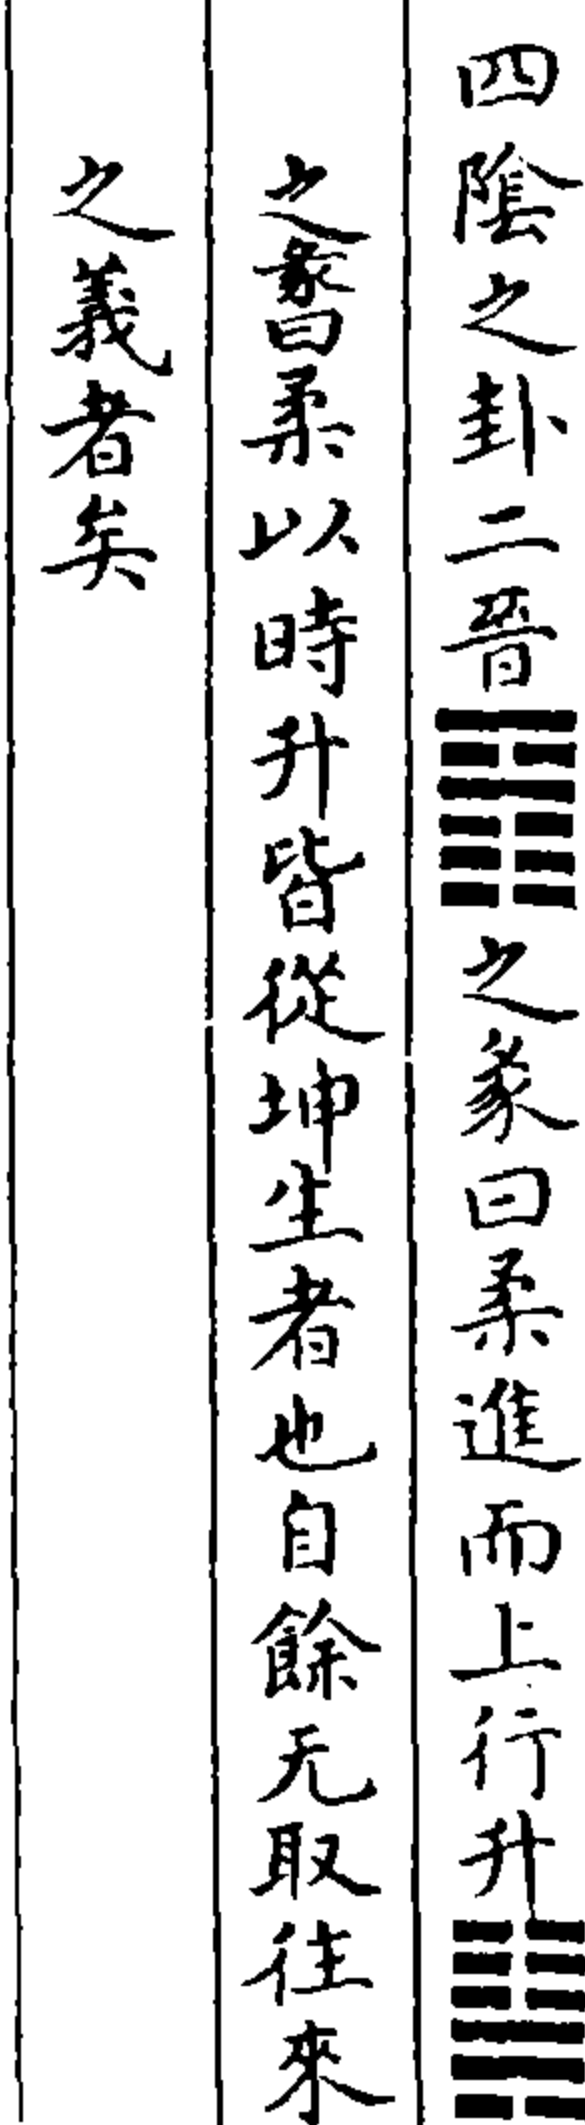 四陰之卦二晉䷢之彖曰柔進而上行升䷭
之彖曰柔以時升皆從坤生者也自餘无取往來
之義者矣